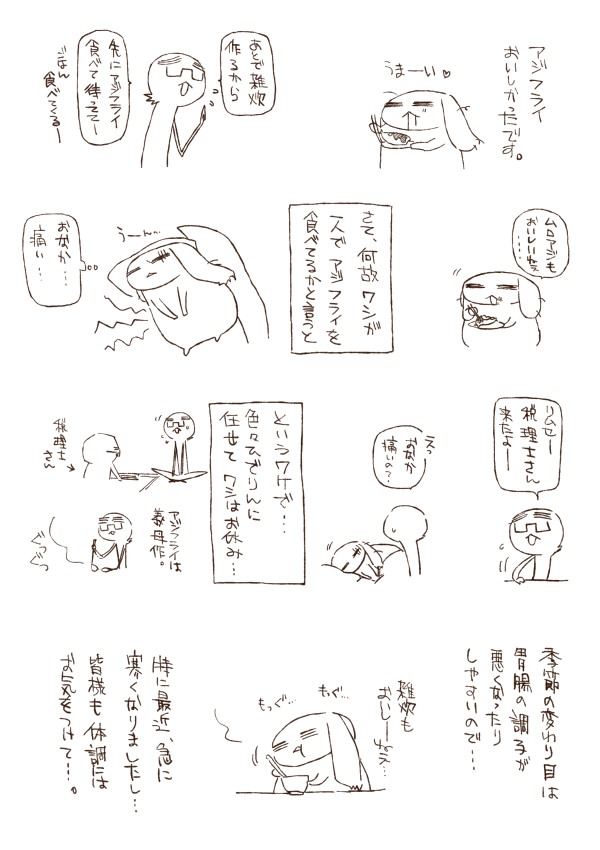 アジフライ
おいしかったです。
うまーい♡
あとで雑炊
作るから
先にアジフライ
食べて待っててー
ごはん
食べてくるー
ムロアジも
おいしいねぇ
……
さて、何故ワシが
一人でアジフライを
食べてるかと言うと
うーん…
おなか…
痛い…
リムセー
税理士さん
来たよー
えっ
おなか
痛いの？
というワケで…
色々ひでりんに
任せてワシはお休み…
税理士
さん
アジフライは
義母作。
ぐつぐつ
季節の変わり目は
胃腸の調子が
悪くなったり
しやすいので…
雑炊も
おいしーねぇ…
もっぐ…
もっぐ…
特に最近、急に
寒くなりましたし…
皆様も体調には
お気をつけて…。